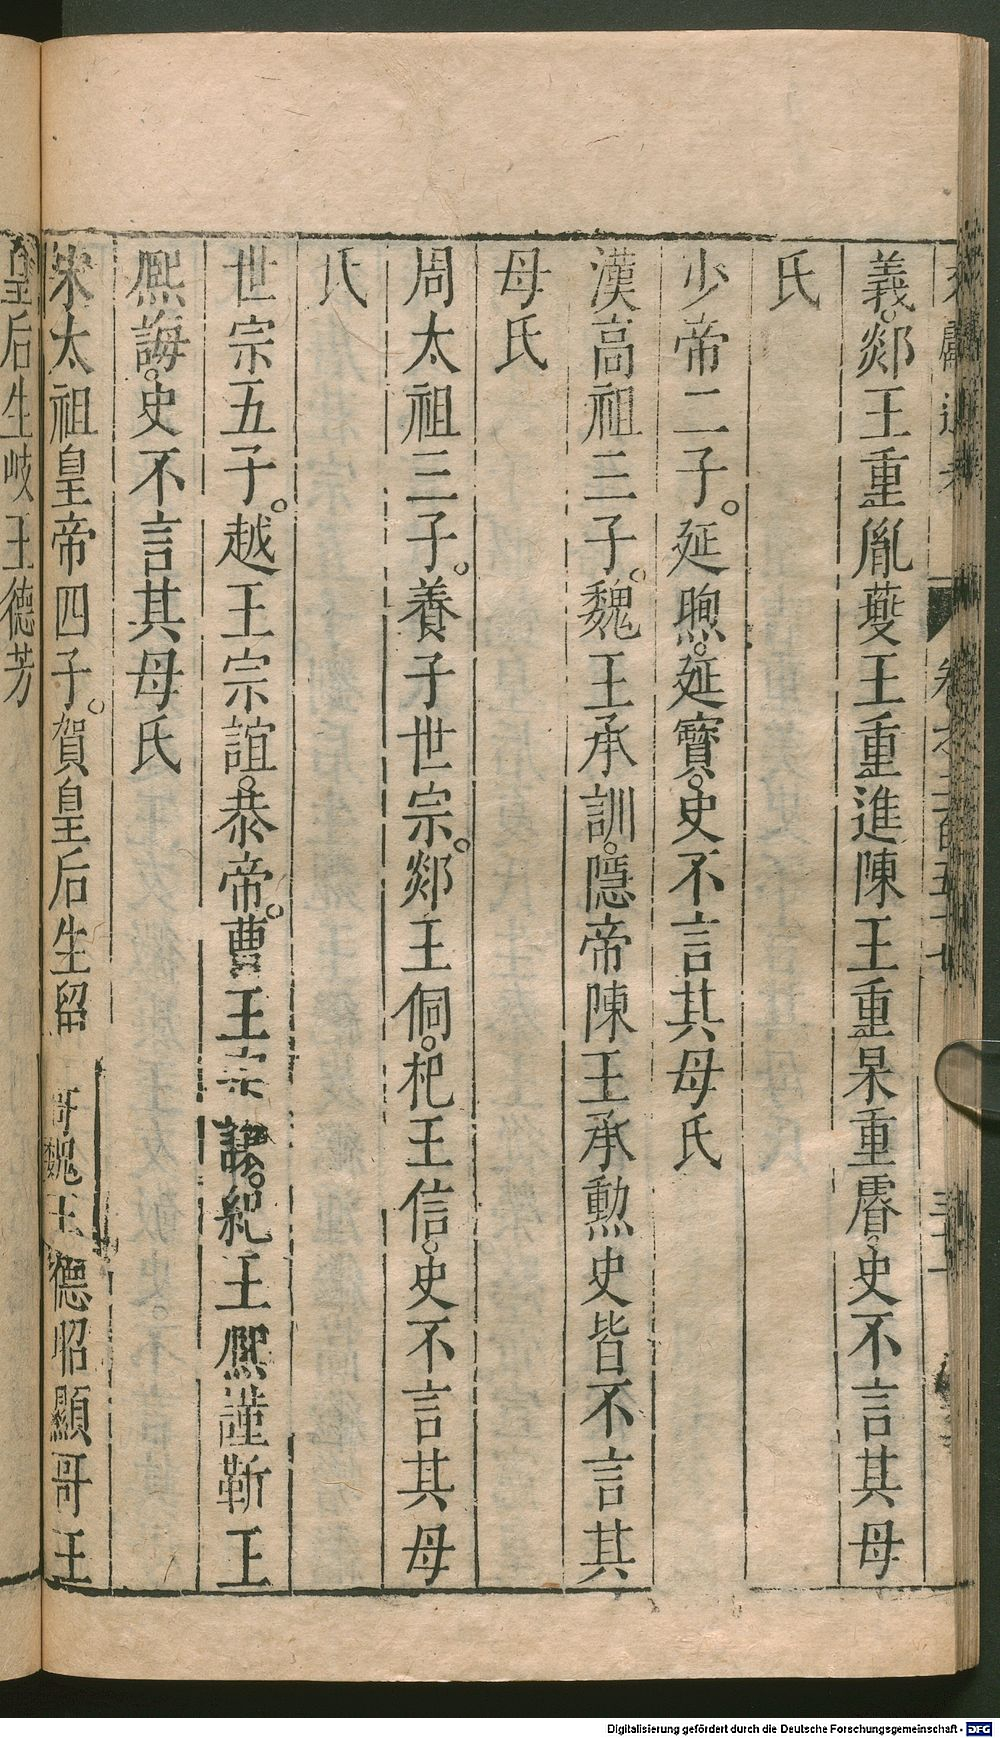 義郯王重胤夔王重進陳王重杲重睿史不言其母
氏
少帝二子延煦延寶史不言其母氏
漢高祖三子魏王承訓隱帝陳王承勳史皆不言其
母氏
周太祖三子養子世宗郯王侗杞王信史不言其母
氏
世宗五子越王宗誼恭帝曹王宗讓紀王熙謹蘄王
熙誨史不言其母氏
宋太祖皇帝四子賀皇后生留哥魏王德昭顯哥王
皇后生岐王德芳
Digitalisierung gefördert durch die Deutsche Forschungsgemeinschaft - DFG